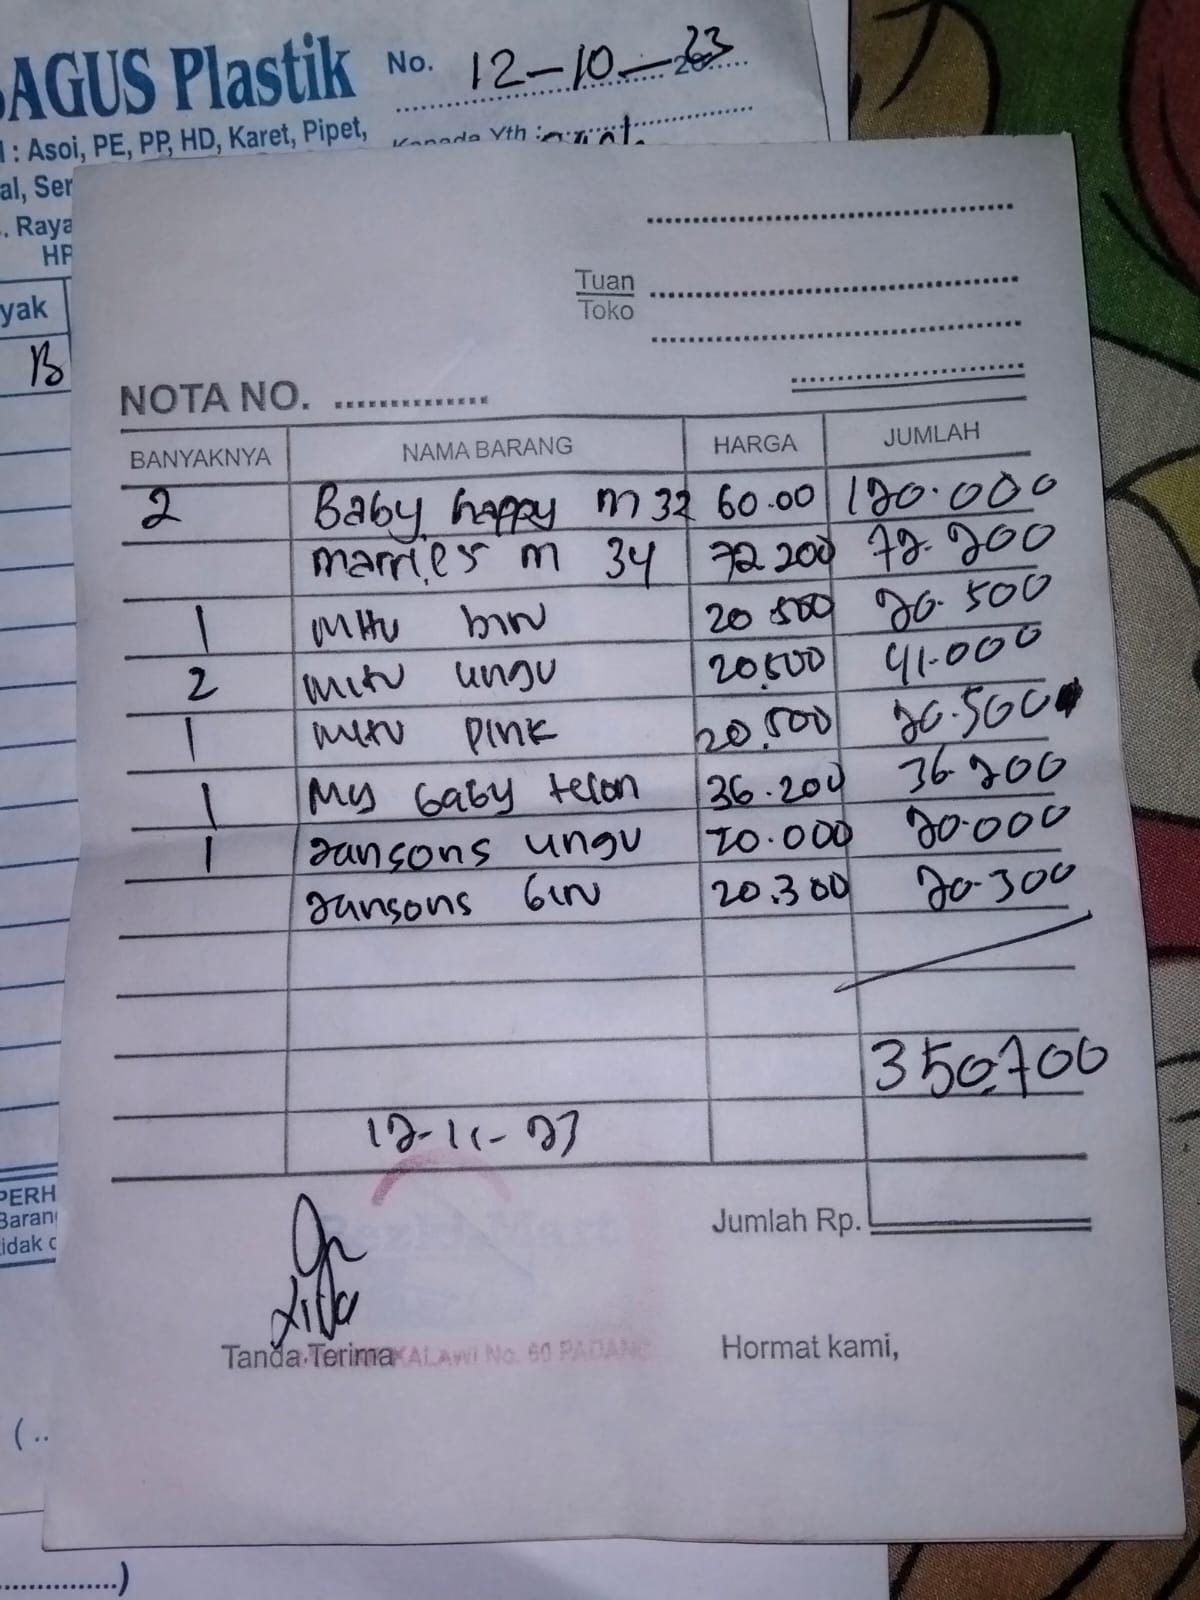 BAGUS Plastik
No. 12-10-23
: Asoi, PE, PP, HD, Karet, Pipet,
Kepada Yth :
al, Ser
. Raya
HP
yak
B
Tuan
Toko
NOTA NO.
BANYAKNYA NAMA BARANG HARGA JUMLAH
2 Baby happy m 32 60.00 120.000
marries m 34 72 200 72.200
1 mitu biru 20.500 20.500
2 mitu ungu 20.500 41.000
1 mitu pink 20.500 20.500
1 My baby telon 36.200 36.200
1 Jansons ungu 20.000 20.000
Jansons biru 20.300 20.300
350.700
12-11-23
Jumlah Rp.
Lila
Tanda Terima
KALAWI No. 60 PADANG
Hormat kami,
PERH
Baran
idak
(..
)